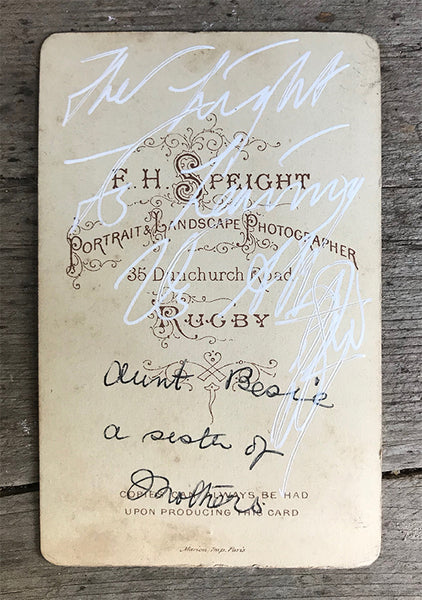 The Light
Is Leaving
Us All
E. H. SPEIGHT
PORTRAIT & LANDSCAPE PHOTOGRAPHER
35 Dunchurch Road
RUGBY
Aunt Besie
a sister of
Mothers.
COPIES CAN ALWAYS BE HAD
UPON PRODUCING THIS CARD
Marion Imp. Paris